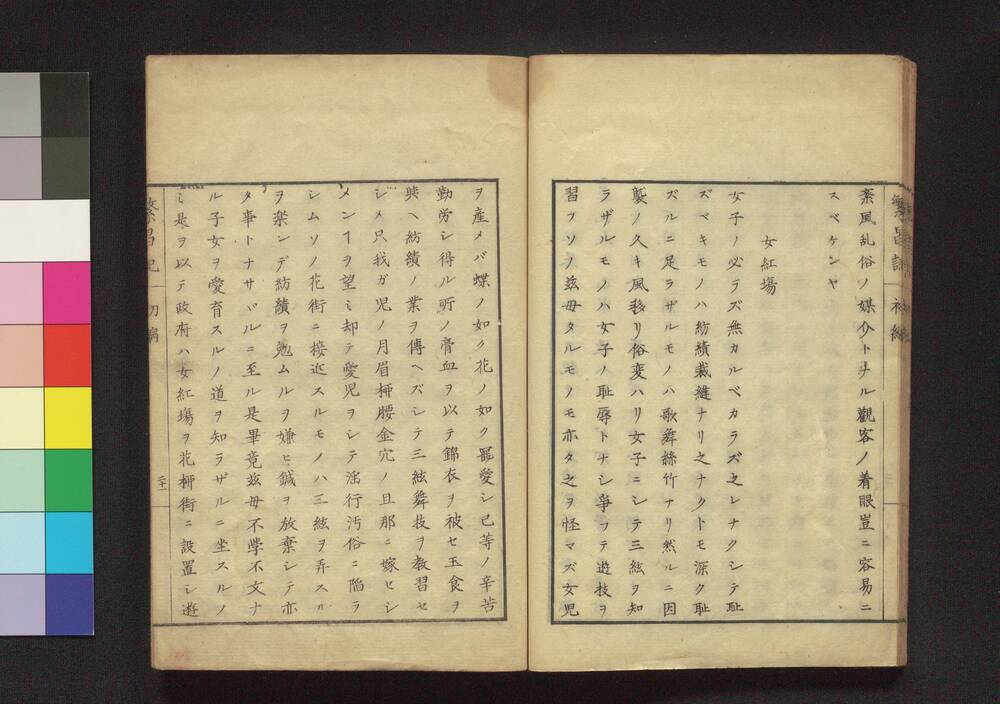 紊風乱俗ノ媒介トナル觀客ノ着眼豈ニ容易ニ
スベケンヤ
女紅場
女子ノ必ラズ無カルベカラズ之レナクシテ耻
ズベキモノハ紡績裁縫ナリ之ナクトモ深ク耻
ズルニ足ラザルモノハ歌舞絲竹ナリ然ルニ因
襲ノ久キ風移リ俗変ハリ女子ニシテ三絃ヲ知
ラザルモノハ女子ノ耻辱トナシ爭フテ遊技ヲ
習フソノ茲母タルモノモ亦タ之ヲ怪マズ女児
ヲ産メバ蝶ノ如ク花ノ如ク寵愛シ已等ノ辛苦
勤労シ得ル所ノ膏血ヲ以テ錦衣ヲ被セ玉食ヲ
與ヘ紡績ノ業ヲ傳ヘズシテ三絃舞技ヲ教習セ
シメ只我ガ児ノ月眉栁腰金穴ノ旦那ニ嫁セシ
メンヿヲ望ミ却テ愛児ヲシテ淫行汚俗ニ陥ラ
シムソノ花街ニ接近スルモノハ三絃ヲ弄スル
ヲ楽シデ紡績ヲ勉ムルヲ嫌ヒ鍼ヲ放棄シテ亦
タ事トナサヾルニ至ル是畢竟茲母不學不文ナ
ル子女ヲ愛育スルノ道ヲ知ラザルニ坐スルノ
ミ是ヲ以テ政府ハ女紅場ヲ花栁街ニ設置シ遊
繁昌記 初編
二十一